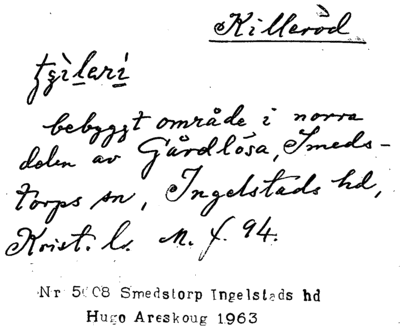 Killeröd
tzìlarì
bebyggt område i norra
delen av Gårdlösa, Smeds-
torps sn, Ingelstads hd,
Krist. l. M. f. 94.
Nr 5008 Smedstorp Ingelstads hd
Hugo Areskoug 1963